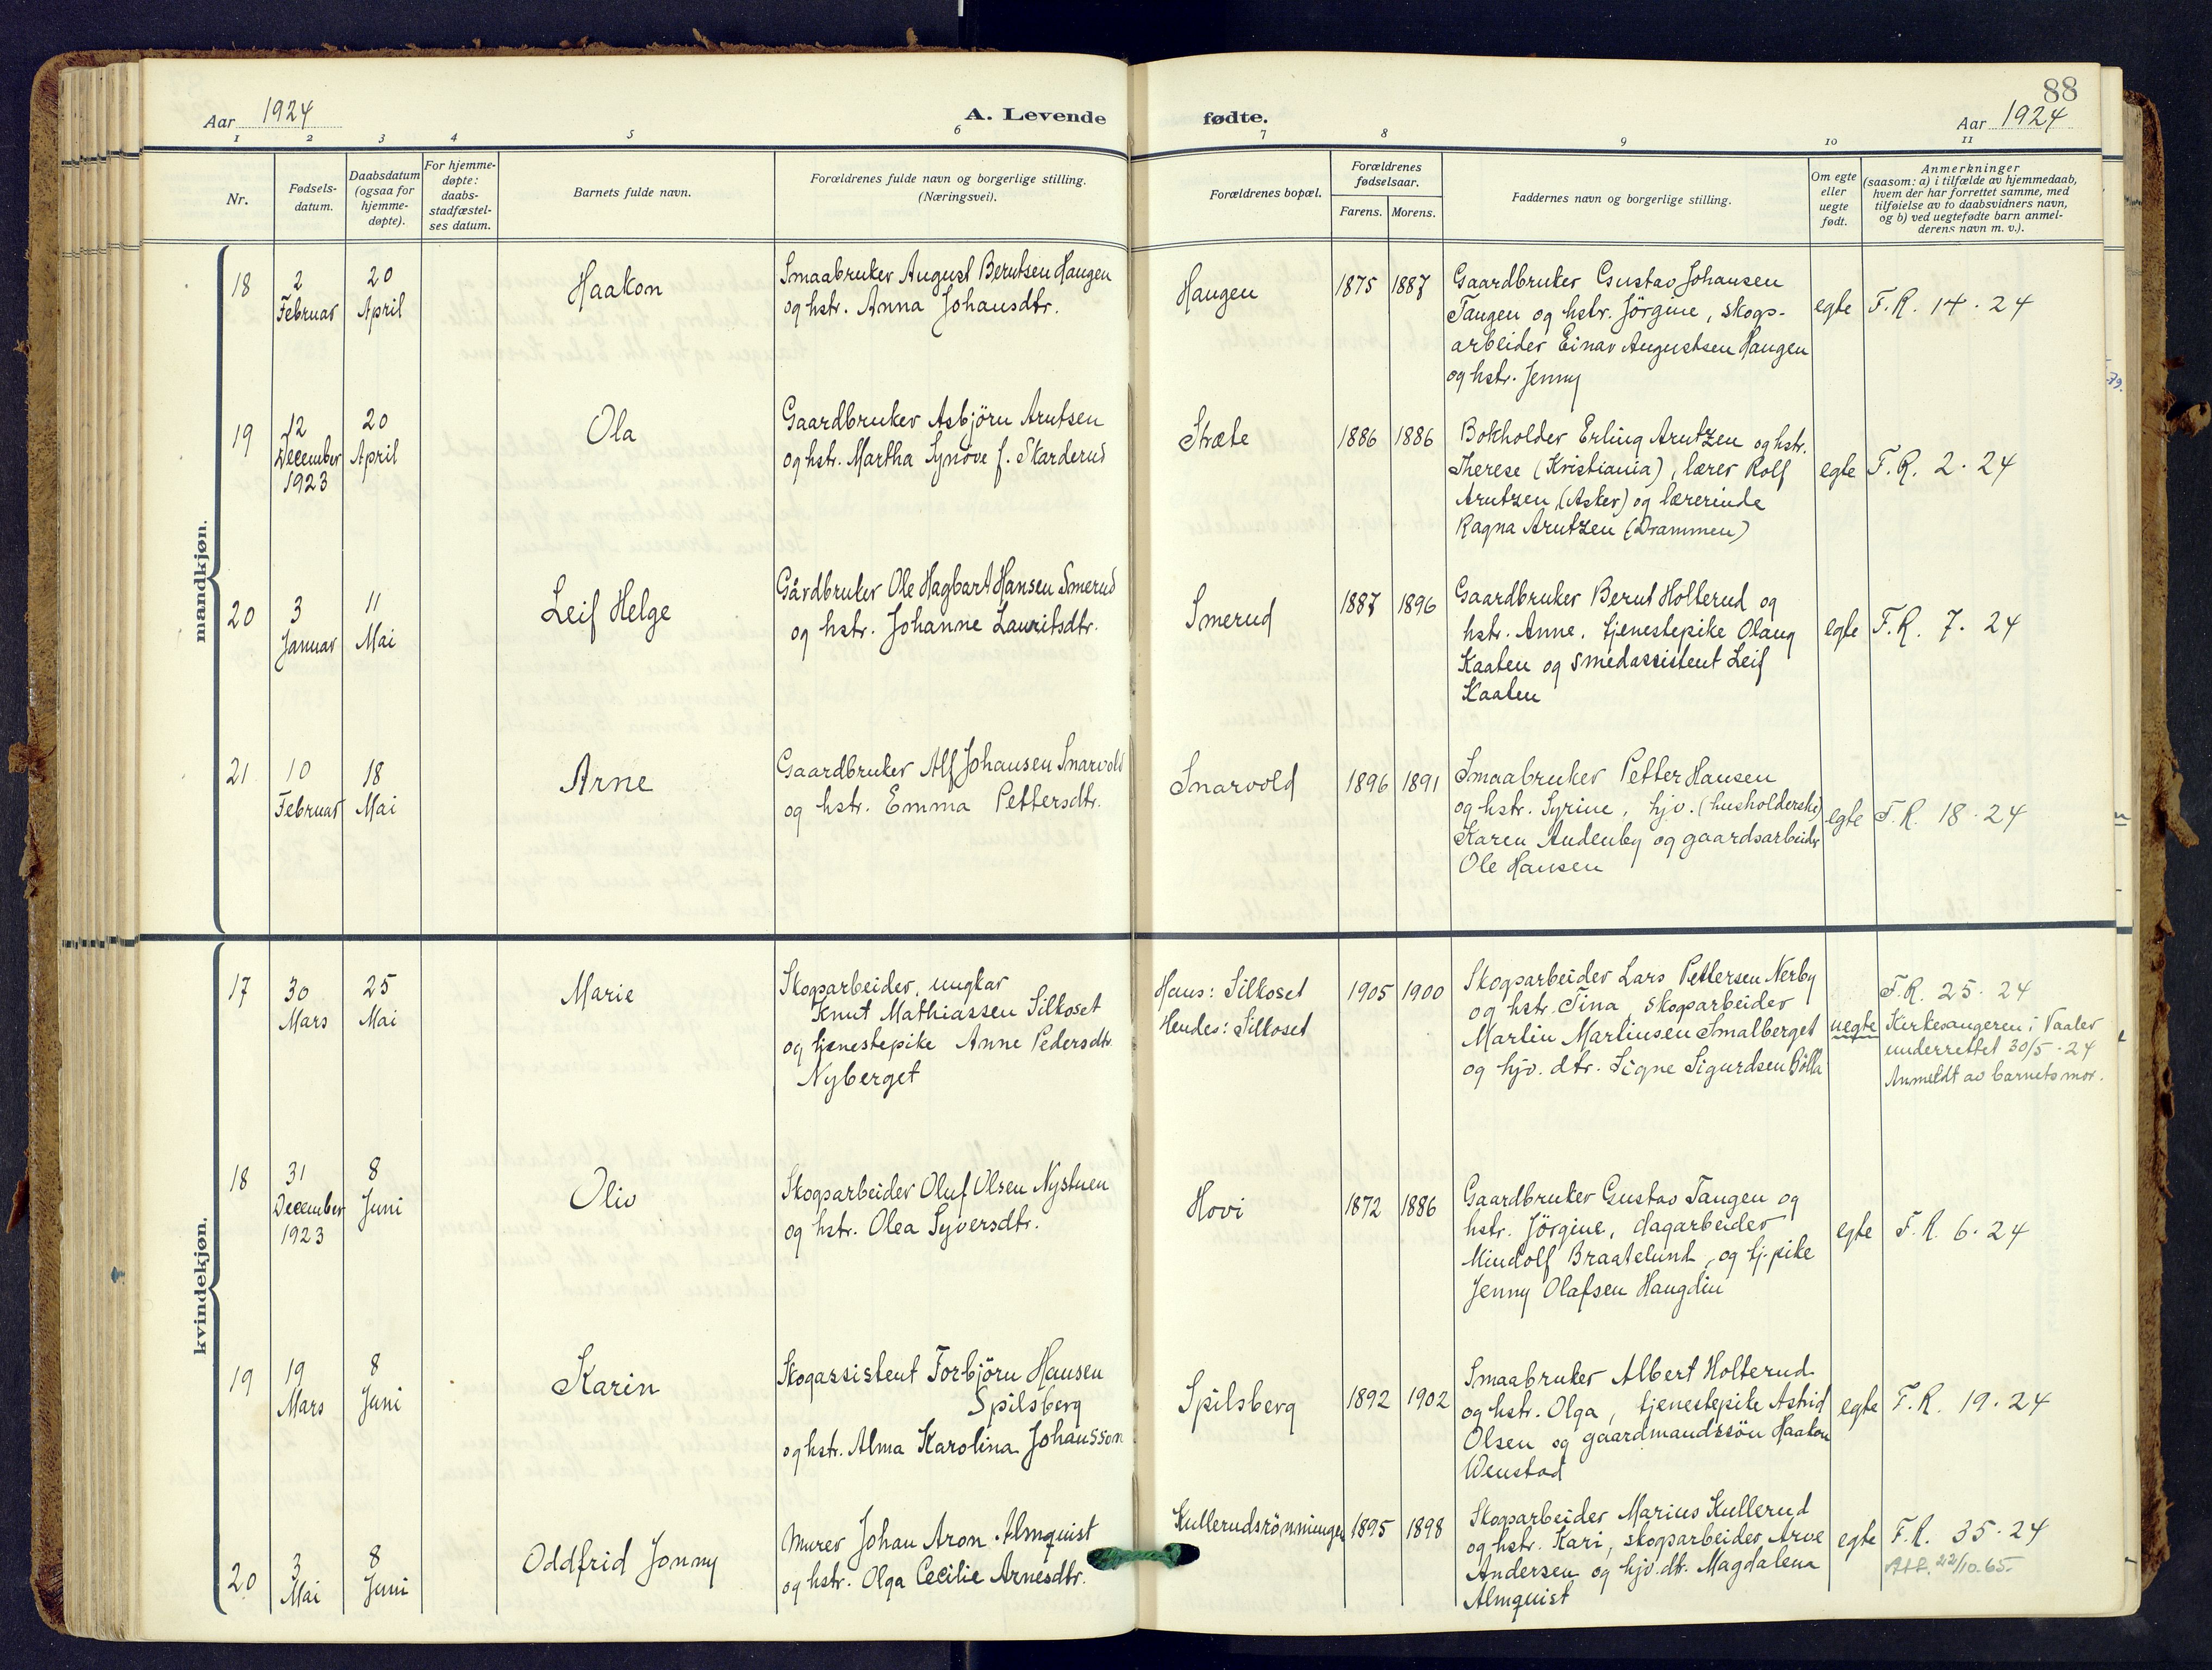 88
Aar 1924
A. Levende
fødte.
Aar 1924
1 2 3 4 5 6 7 8 9 10 11
Nr.
Fødsels-
datum.
Daabsdatum
(ogsaa for
hjemme-
døpte).
For hjemme-
døpte:
daabs-
stadfæstel-
ses datum.
Barnets fulde navn.
Forældrenes fulde navn og borgerlige stilling.
(Næringsvei).
Forældrenes bopæl.
Forældrenes
fødselsaar.
Farens. Morens.
Faddernes navn og borgerlige stilling.
Om egte
eller
uegte
født.
Anmerkninger
(saasom: a) i tilfælde av hjemmedaab,
hvem der har forrettet samme, med
tilføielse av to daabsvidners navn,
og b) ved uegtefødte barn anmel-
derens navn m. v.).
mandkjøn.
18
2
Februar
20
April
Haakon
Smaabruker August Berntsen Haugen
og hstr. Anna Johansdtr.
Haugen
1875 1887
Gaardbruker Gustav Johansen
Tangen og hstr. Jörgine, skogs-
arbeider Einar Augustsen Haugen
og hstr. Jenny
egte
F.R. 14 · 24
19
12
December
1923
20
April
Ola
Gaardbruker Asbjörn Arntsen
og hstr. Martha Synöve f. Skarderud
Stræte
1886 1886
Bokholder Erling Arntzen og hstr.
Therese (Kristiania), lærer Rolf
Arntzen (Asker) og lærerinde
Ragna Arntzen (Drammen)
egte
F.R. 2 · 24
20
3
Januar
11
Mai
Leif Helge
Gårdbruker Ole Hagbart Hansen Smerud
og hstr. Johanne Lauritsdtr.
Smerud
1887 1896
Gaardbruker Bernt Holterud og
hstr. Anne, tjenestepike Olaug
Kaaten og smedassistent Leif
Kaaten
egte
F.R. 7. 24
21
10
Februar
18
Mai
Arne
Gaardbruker Alf Johansen Snarvold
og hstr. Emma Pettersdtr.
Snarvold
1896 1891
Smaabruker Petter Hansen
og hstr. Syrine, hjv. (husholderske)
Karen Audenby og gaardsarbeider
Ole Hansen
egte
F.R. 18 · 24
kvindekjøn.
17
30
Mars
25
Mai
Marie
Skogsarbeider, ungkar
Knut Mathiassen Silkoset
og tjenestepike Anne Pedersdtr.
Nyberget
Hans: Silkoset
Hendes: Silkoset
1905 1900
Skogsarbeider Lars Pettersen Nerby
og hstr. Tina, skogsarbeider
Martin Martinsen Smalberget
og hjv. dtr. Signe Sigurdsen Bölla
uegte
F.R. 25 · 24
Kirkesangeren i Vaaler
underrettet 30/5 · 24
Anmeldt av barnets mor.
18
31
December
1923
8
Juni
Oliv
Skogsarbeider Oluf Olsen Nystuen
og hstr. Olea Syversdtr.
Hovi
1872 1886
Gaardbruker Gustav Tangen og
hstr. Jörgine, dagarbeider
Mindolf Braatelund, og tj. pike
Jenny Olafsen Haugdin
egte
F.R. 6 · 24
19
19
Mars
8
Juni
Karin
Skogassistent Torbjörn Hansen
Spilsberg
og hstr. Alma Karolina Johansson
Spilsberg
1892 1902
Smaabruker Albert Holterud
og hstr. Olga, tjenestepike Astrid
Olsen og gaardmandssön Haakon
Wenstad
egte
F.R. 19 · 24
20
3
Mai
8
Juni
Oddfrid Jonny
Murer Johan Aron Almquist
og hstr. Olga Cecilie Arnesdtr.
Kullerudsrönningen
1895 1898
Skogsarbeider Marius Kullerud
og hstr. Kari, skogsarbeider Arve
Andersen og hjv. dtr. Magdalena
Almquist
egte
F.R. 35 · 24
22/10.65.